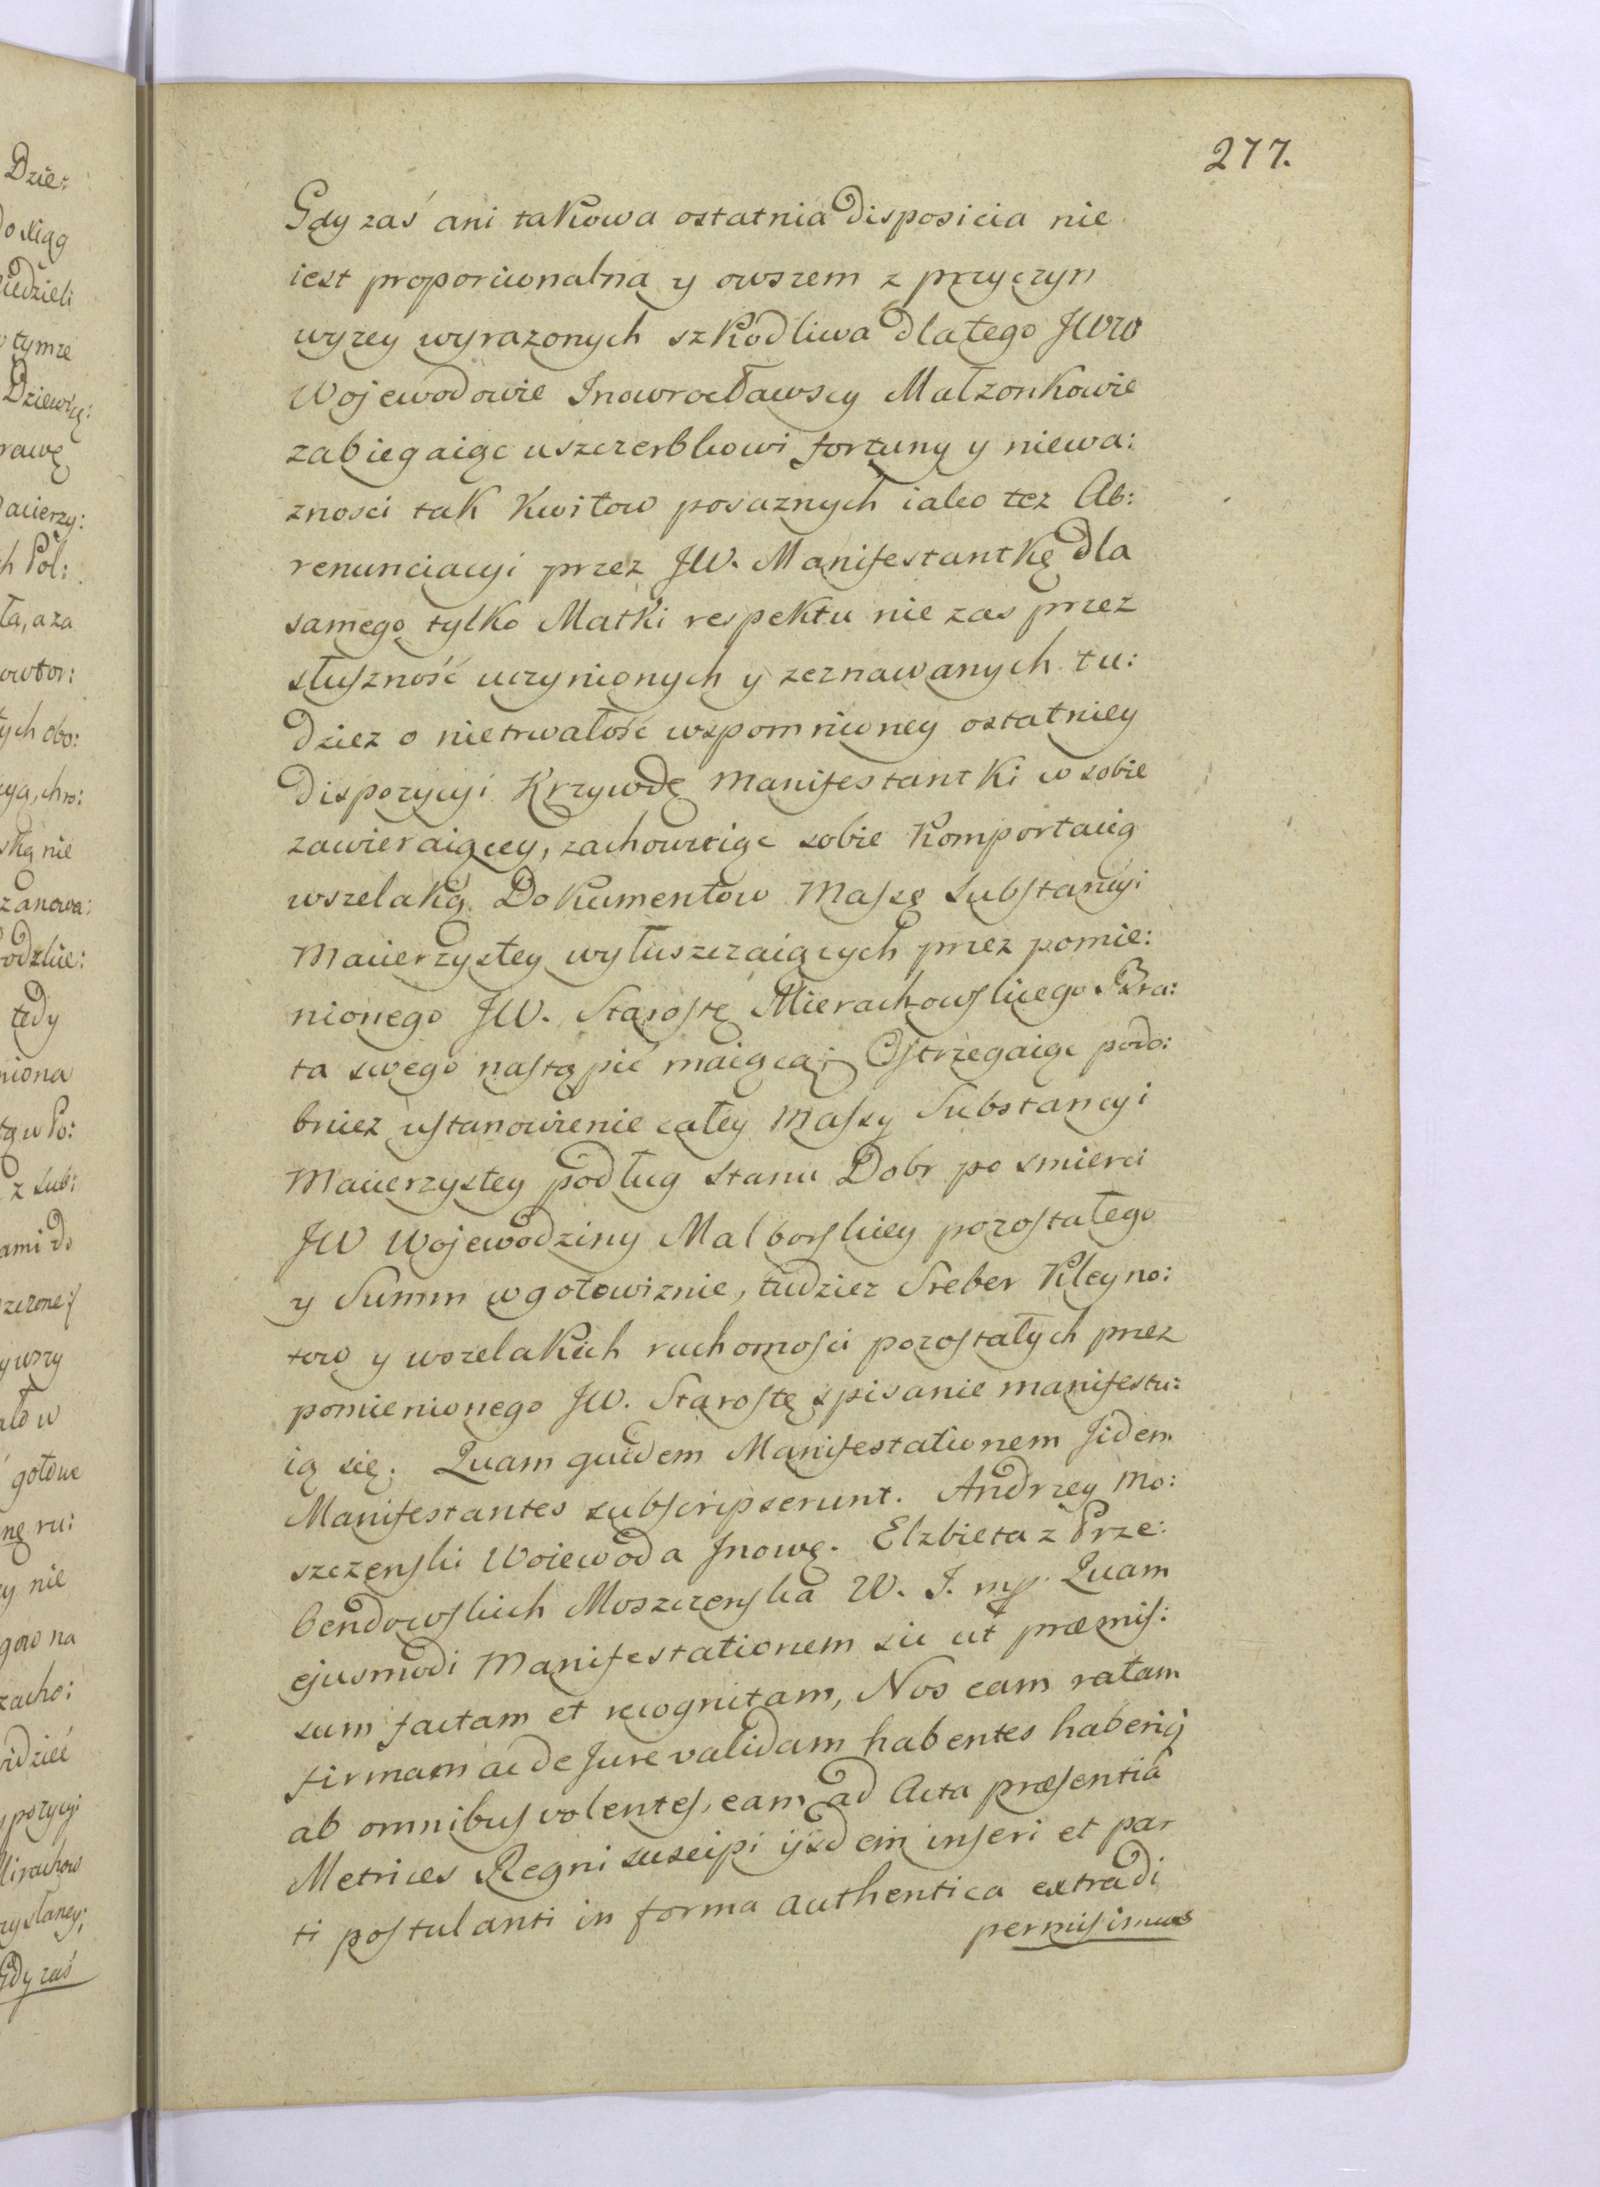 277.
Gdy zaś ani takowa ostatnia disposicia nie
iest proporcionalna y owszem z przyczyn
wyzey wyrazonych szkodliwa dlatego JWW
Wojewodowie Inowrocławscy Małzonkowie
zabiegaiąc uszczerbkowi fortuny y niewa:
znosci tak kwitow posaznych iako tez Ab:
renunciacyi przez JW. Manifestantkę dla
samego tylko Matki respektu nie zas przez
słuszność uczynionych y zeznawanych tu:
dziez o nietrwałość wspomnioney ostatniey
dispozycyi Krzywdę Manifestantki w sobie
zawieraiącey, zachowuiąc sobie Komportacią
wszelaką Dokumentow Massę Substancyi
Macierzystey wyłuszczaiących przez pomie:
nionego JW. Starostę Mierachowskiego Bra:
ta swego nastąpić maiącą; Ostrzegaiąc podo:
bniez ustanowienie całey Massy Substancyi
Macierzystey podług stanu Dobr po smierci
JW Wojewodziny Malborskiey pozostałego
y Summ w gotowiznie, tudziez Sreber Kleyno:
tow y wszelakich ruchomosci pozostałych przez
pomienionego JW. Starostę spisanie manifestu:
ią się. Quam quidem Manifestationem Jidem
Manifestantes subscripserunt. Andrzey Mo:
szczenski Woiewoda Inowę. Elzbieta z Prze:
bendowskich Moszczenska W. J. mp. Quam
ejusmodi Manifestationem sic ut præmis:
sum factam et recognitam, Nos eam ratam
firmam ac de Jure validam habentes haberiq
ab omnibus volentes, eam ad Acta præsentia
Metrices Regni suscipi ijsdem inseri et par
ti postulanti in forma authentica extradi
permisimus
Dzie:
do xiąg
w tymze
Dziewię:
rawę
acierzy:
ch Pol:
ła, a za
owtor:
tych obo:
cya, chro:
ską nie
zanowa:
odzkie:
tedy
niona
tą w Po:
z sub:
ami do
ywszy
gotowe
nę ru:
ey nie
gow na
zacho:
idzieć
spozycyi
Mirachow
zystaney;
Gdy zaś